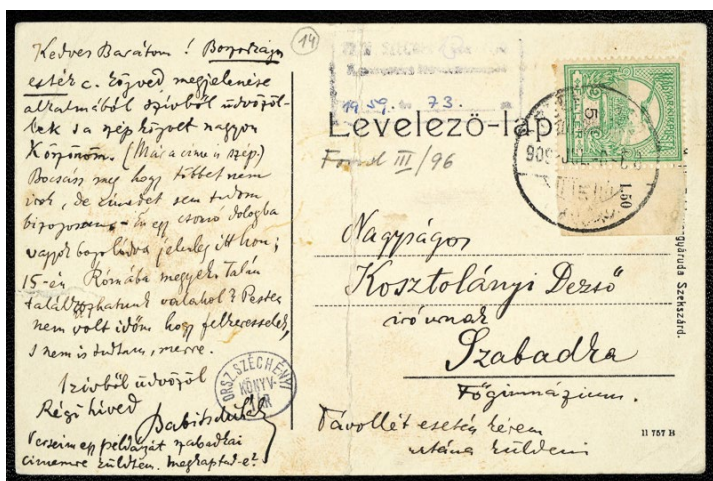 Kedves Barátom! Boszorkányos
esték c. könyved megjelenése
alkalmából szívből üdvözöl-
lek s a szép könyvet nagyon
köszönöm. (Már a címe is szép.)
Bocsáss meg hogy többet nem
írok, de
egy csomó dologba
vagyok jelenleg itthon;
15-én Rómába megyek. Talán
találkozhatunk valahol? Pesten
nem volt időm hogy felkeresselek,
s nem is tudtam, merre.
Szívből üdvözöl
Régi híved
Babits Mihály
Verseim egy példányát szabadkai
címemre küldtem. megkaptad-e?
14
ORSZ. SZÉCHÉNYI
KÖNYV-
TÁR
1959. 73.
Levelező-lap
Fond III/96
Nagyságos
Kosztolányi Dezső
író úrnak
Szabadka
Főgimnázium.
Távollét esetén kérem
utána küldeni
1.50
Szekszárd.
11 757 H